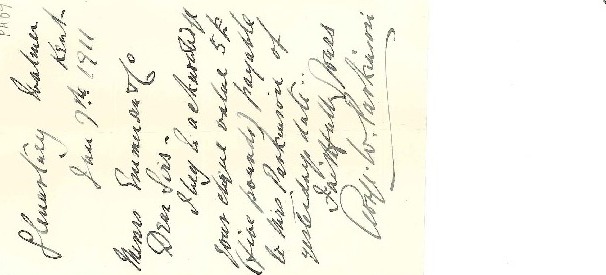 Walmer
Kent.
Jan 9th 1911
Messrs Emmerson & Co
Dear Sirs -
I beg to acknowledge
your cheque value 5£
(five pounds) payable
to Mrs Parkinson of
yesterdays date.
Faithfully Yours
W. Parkinson